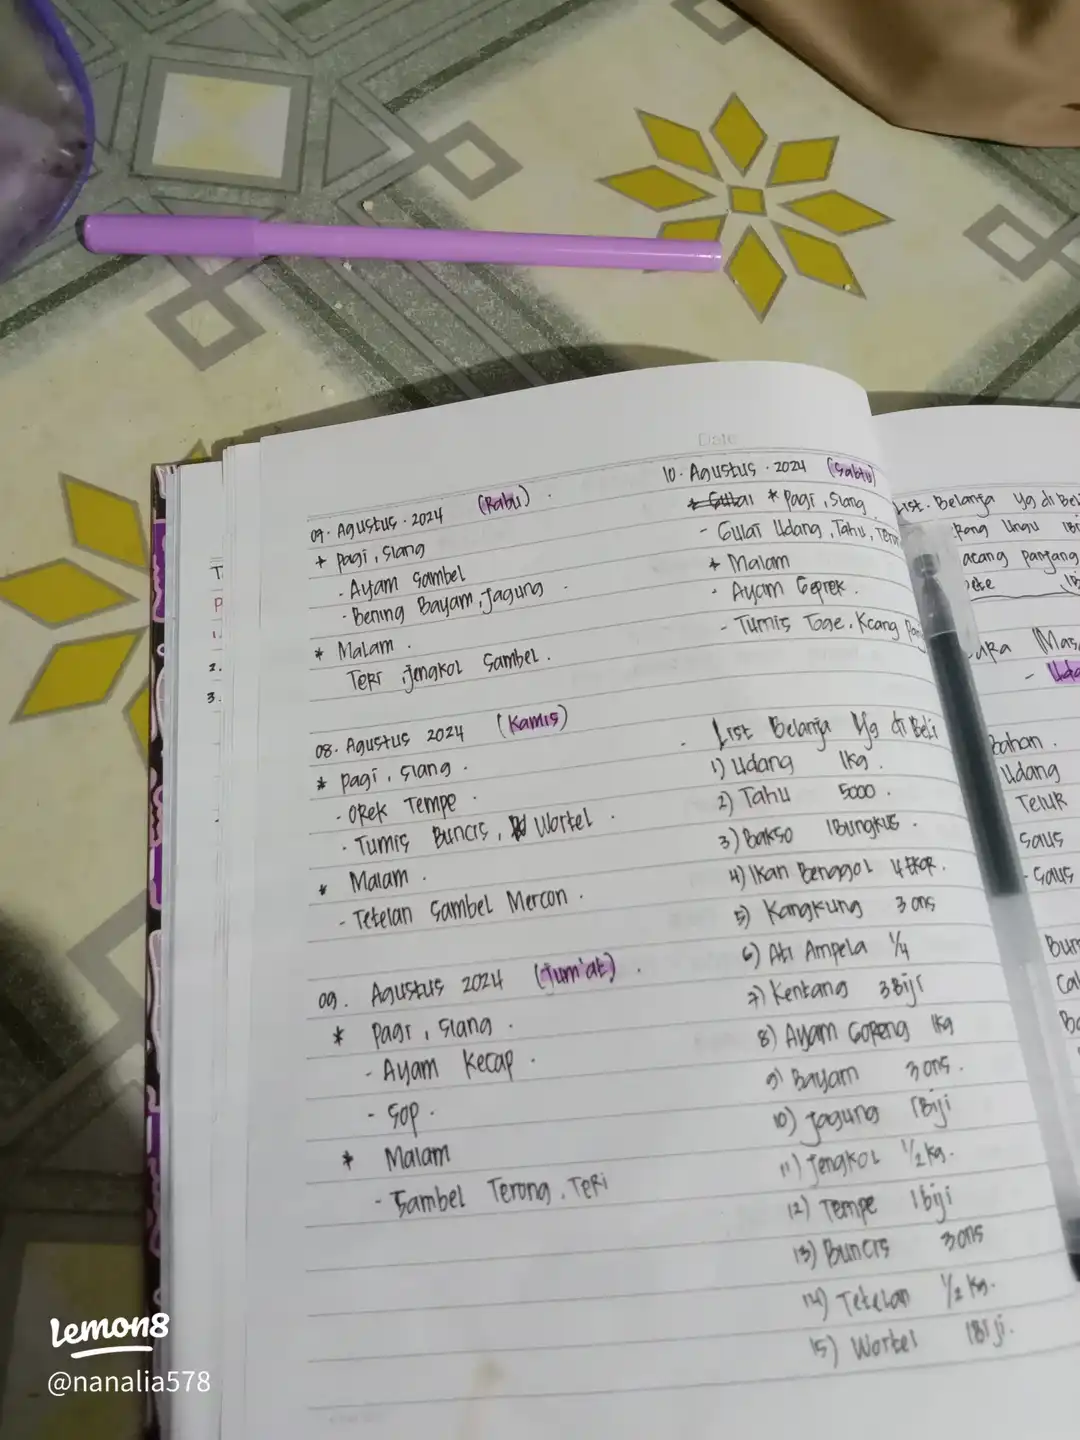 Date
09. Agustus. 2024 (Rabu).
* Pagi, Siang
- Ayam Sambel
- Bening Bayam, Jagung.
* Malam.
Teri, Jengkol Sambel.
08. Agustus 2024 (Kamis)
* Pagi, Siang.
- Orek Tempe.
- Tumis Buncis, Wortel.
* Malam.
- Tetelan Sambel Mercon.
09. Agustus 2024 (Jum'at).
* Pagi, Siang.
- Ayam Kecap.
- Sop.
* Malam
- Sambel Terong, Teri
10. Agustus. 2024 (Sabtu)
* Pagi, Siang
- Gulai Udang, Tahu,
* Malam
- Ayam Geprek.
- Tumis Toge, Kcang
List Belanja Yg di Beli
1) Udang 1kg.
2) Tahu 5000.
3) Bakso 1Bungkus.
4) Ikan Benggol 4 Ekor.
5) Kangkung 3 ons
6) Ati Ampela 1/4
7) Kentang 3Biji
8) Ayam Goreng 1kg
9) Bayam 3 ons.
10) Jagung 1Biji
11) Jengkol 1/2 kg.
12) Tempe 1 biji
13) Buncis 3 ons
14) Tetelan 1/2 kg.
15) Wortel 1Biji.
List. Belanja Yg di
Ungu
panjang
Bahan.
Udang
Telur
Saus
- Saus
T
P
1.
2.
3.
Lemon8
@nanalia578